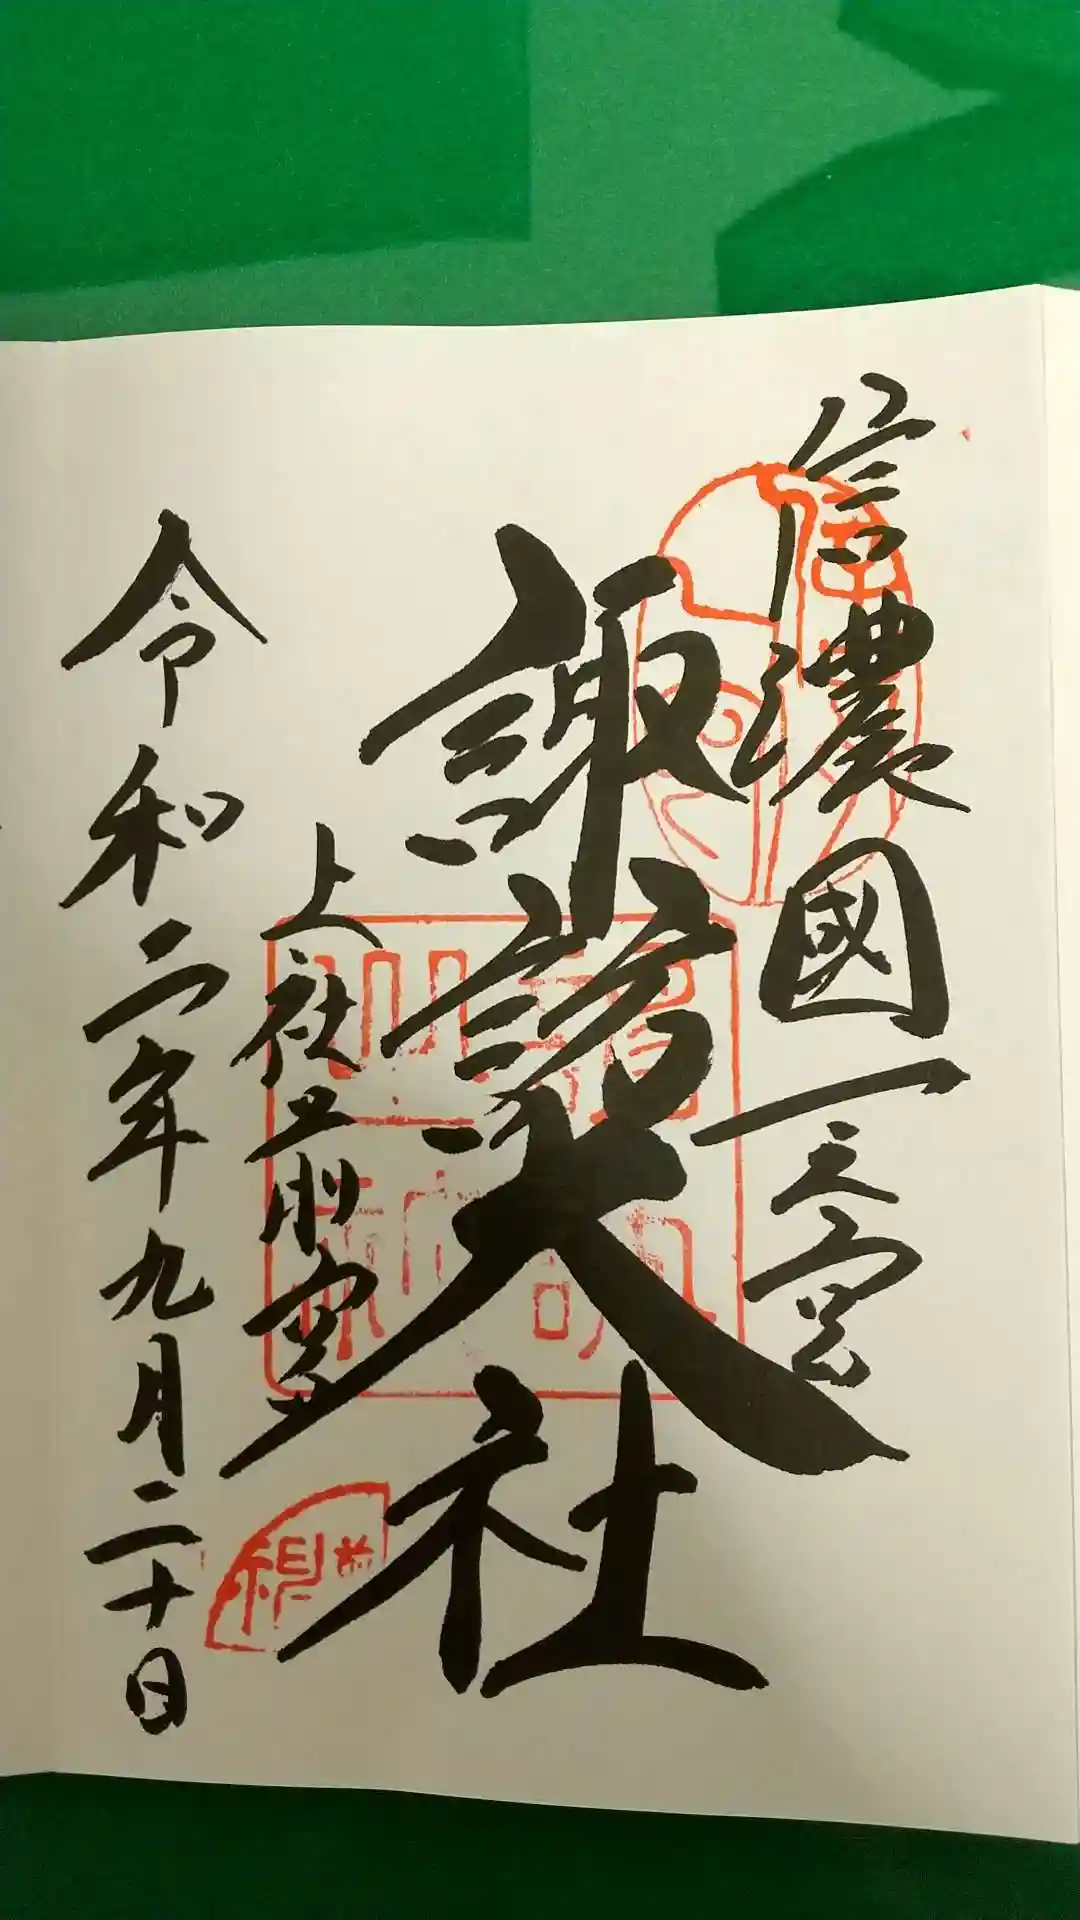 信濃國一之宮
諏訪大社
上社 前宮
令和二年九月二十日